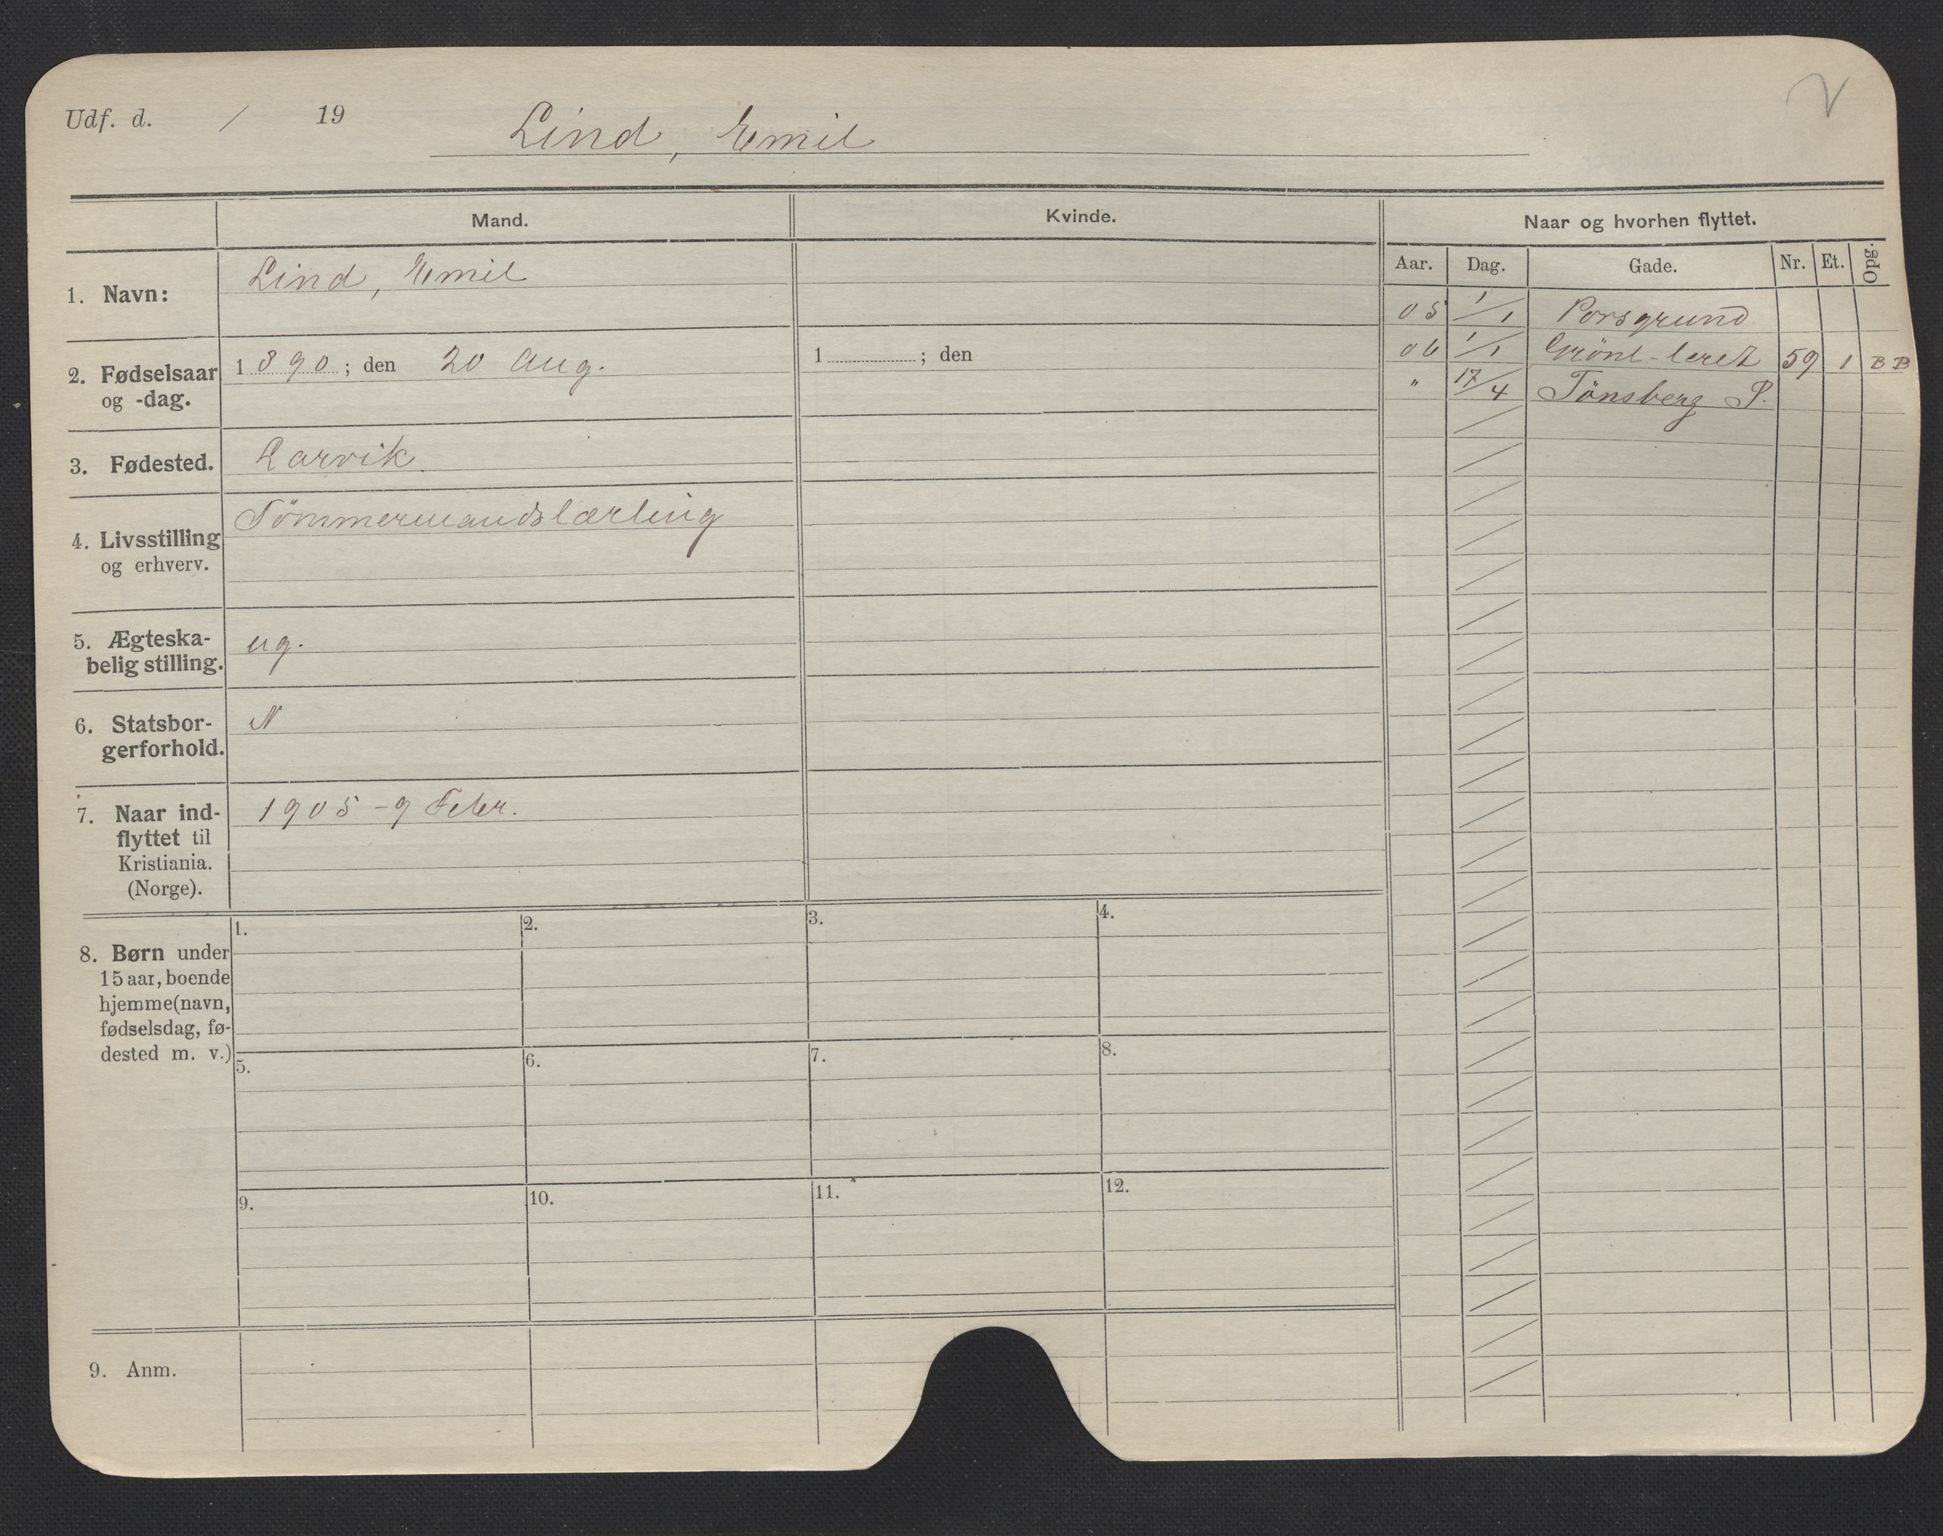 Udf. d. / 19
Lind, Emil
Mand.
Kvinde.
Naar og hvorhen flyttet.
Aar. Dag. Gade. Nr. Et. Opg.
1. Navn: Lind, Emil
05 1/1 Porsgrund
06 1/1 Grønl-leret 59 1 BB
" 17/4 Tönsberg P.
2. Fødselsaar
og -dag.
1890; den 20 Aug.
1 ; den
3. Fødested. Larvik.
4. Livsstilling
og erhverv.
Tömmermandslærling
5. Ægteska-
belig stilling.
ug.
6. Statsbor-
gerforhold.
N
7. Naar ind-
flyttet til
Kristiania.
(Norge).
1905 - 9 Febr.
8. Børn under
15 aar, boende
hjemme (navn,
fødselsdag, fø-
dested m. v.)
1. 2. 3. 4.
5. 6. 7. 8.
9. 10. 11. 12.
9. Anm.